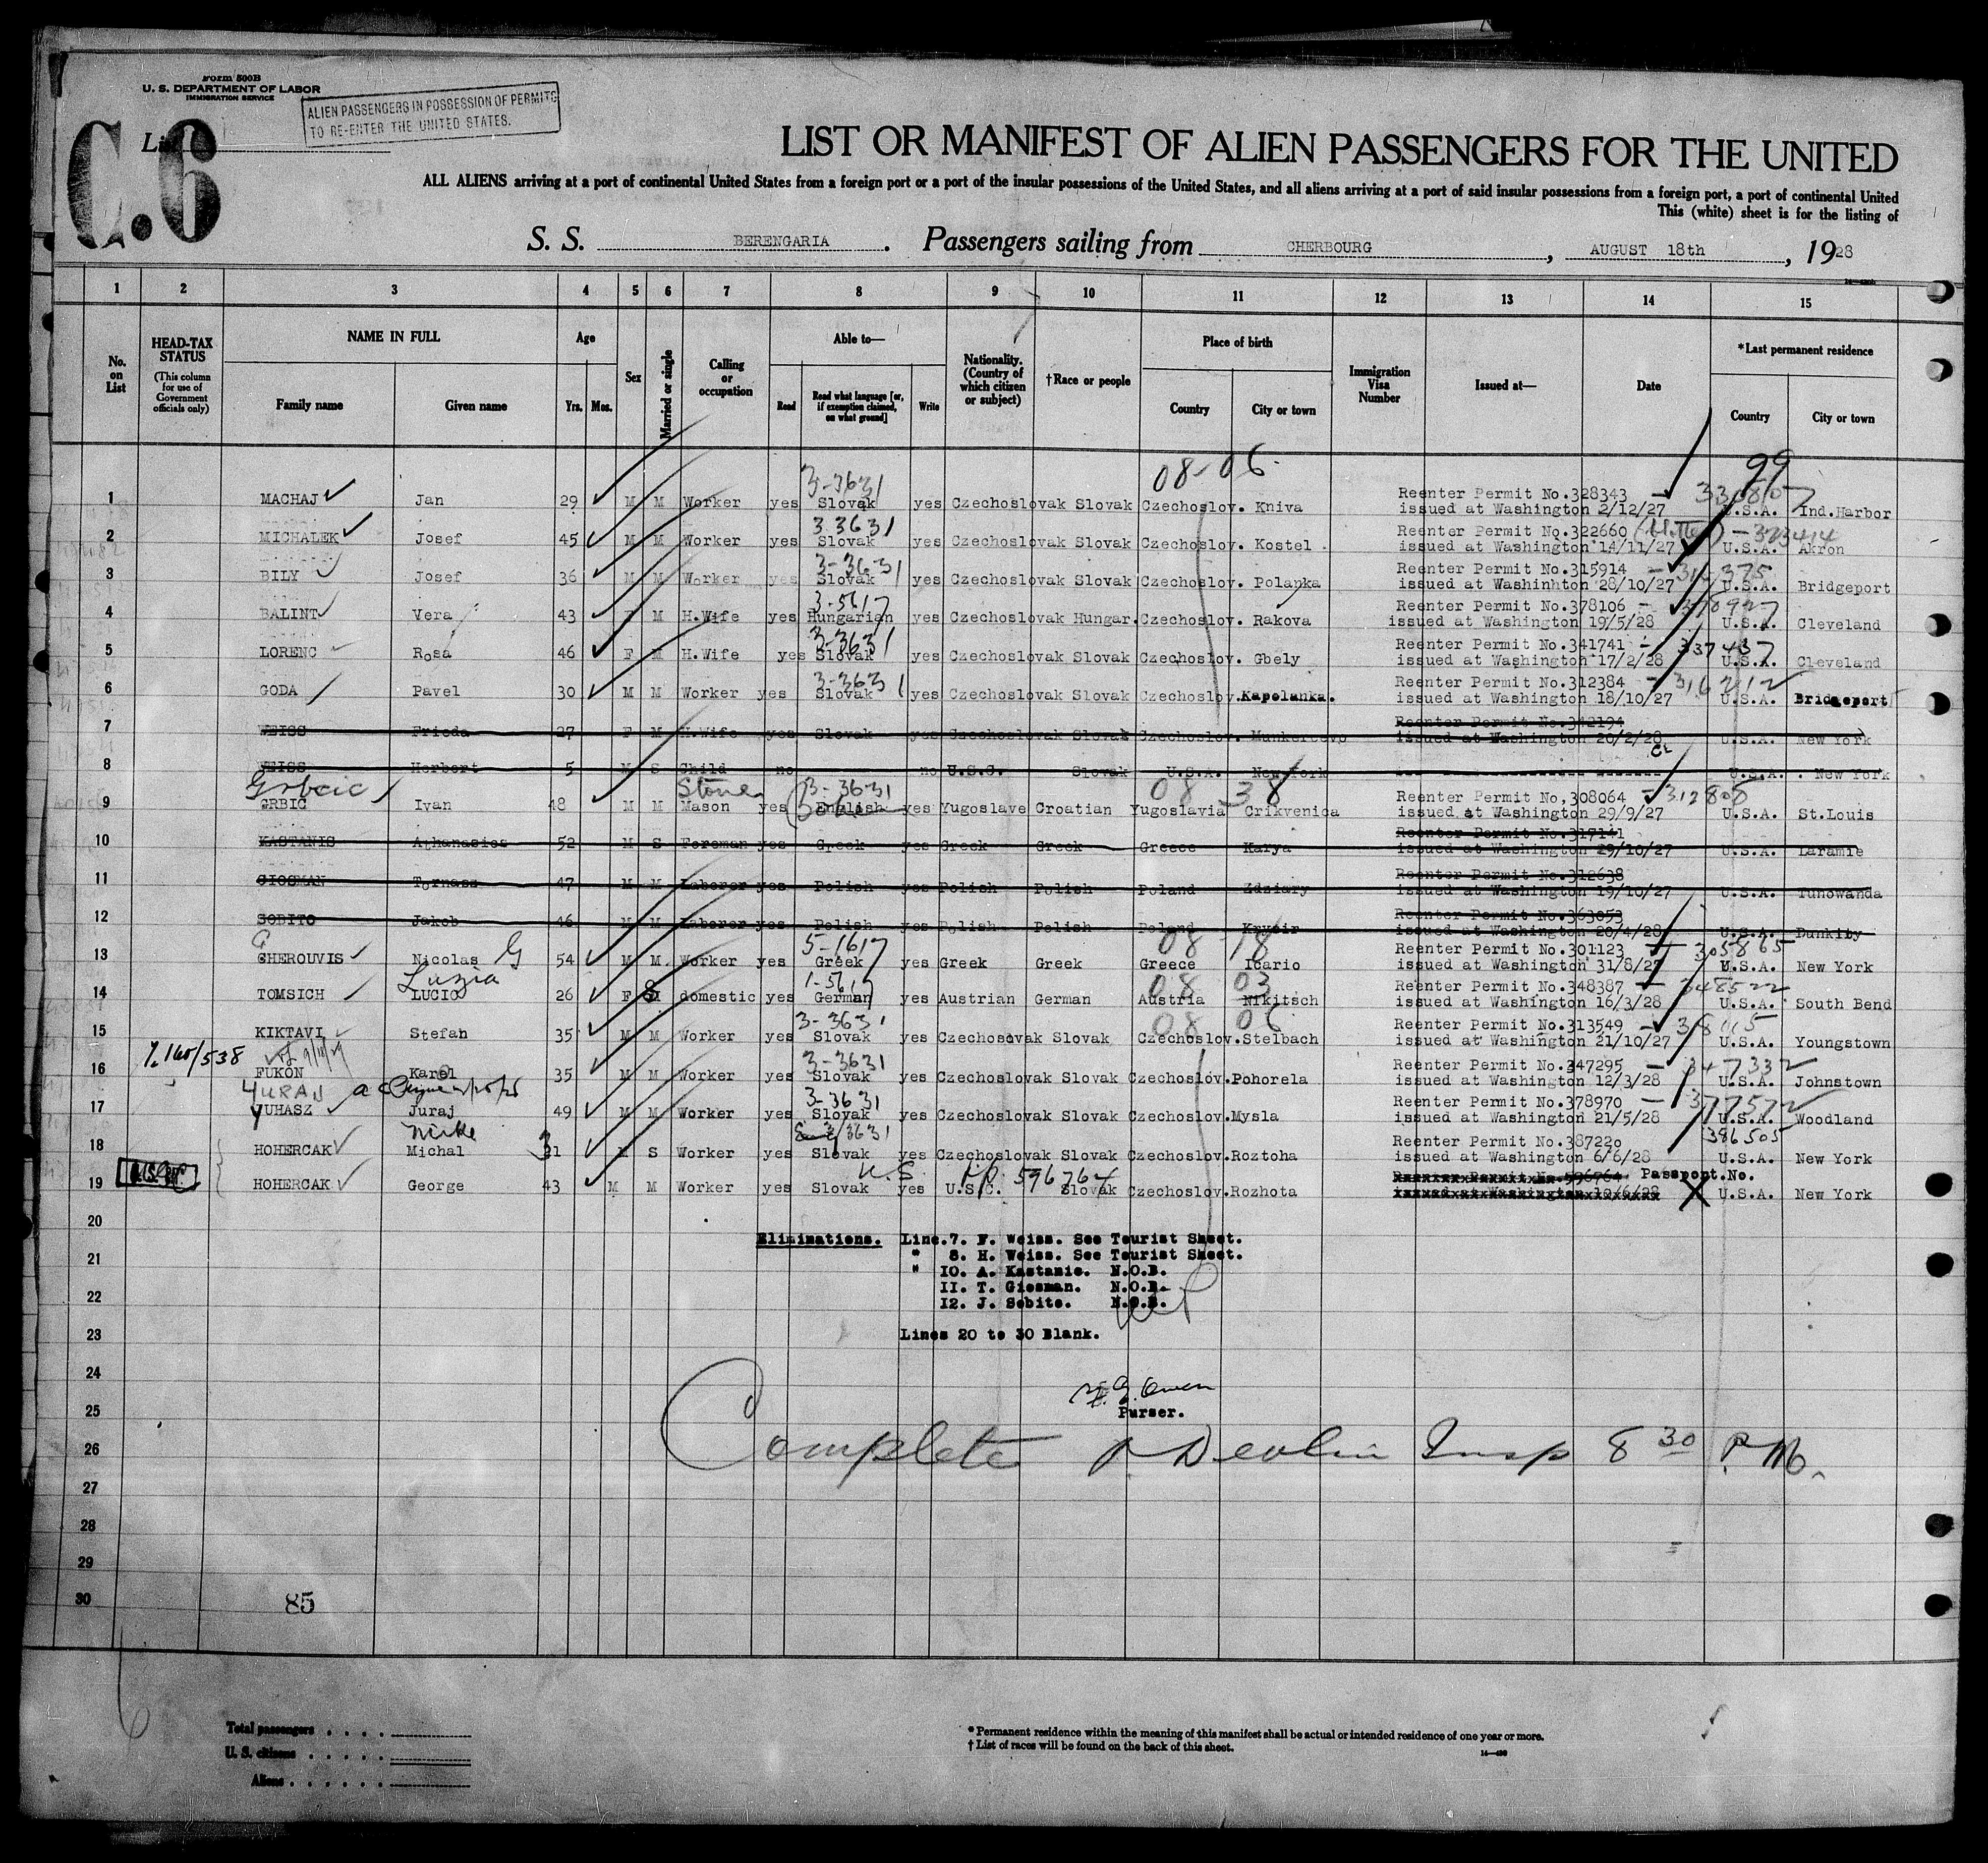 Form 500B
U. S. DEPARTMENT OF LABOR
IMMIGRATION SERVICE
ALIEN PASSENGERS IN POSSESSION OF PERMITS
TO RE-ENTER THE UNITED STATES.
List
C.6
LIST OR MANIFEST OF ALIEN PASSENGERS FOR THE UNITED
ALL ALIENS arriving at a port of continental United States from a foreign port or a port of the insular possessions of the United States, and all aliens arriving at a port of said insular possessions from a foreign port, a port of continental United
This (white) sheet is for the listing of
S. S. BERENGARIA. Passengers sailing from CHERBOURG, AUGUST 18th, 1928
1 2 3 4 5 6 7 8 9 10 11 12 13 14 15
No. on List
HEAD-TAX STATUS
(This column for use of Government officials only)
NAME IN FULL
Family name Given name
Age
Yrs. Mos.
Sex
Married or single
Calling or occupation
Able to—
Read
Read what language [or, if exemption claimed, on what ground]
Write
Nationality. (Country of which citizen or subject)
†Race or people
Place of birth
Country City or town
Immigration Visa Number
Issued at—
Date
*Last permanent residence
Country City or town
3-3631 08-06 99
1 MACHAJ Jan 29 M M Worker yes Slovak yes Czechoslovak Slovak Czechoslov. Kniva Reenter Permit No.328343 issued at Washington 2/12/27 U.S.A. Ind.Harbor
3 3631
2 MICHALEK Josef 45 M M Worker yes Slovak yes Czechoslovak Slovak Czechoslov. Kostel Reenter Permit No.322660 issued at Washington 14/11/27 – 323414 U.S.A. Akron
3-3631
3 BILY Josef 36 M M Worker yes Slovak yes Czechoslovak Slovak Czechoslov. Polanka Reenter Permit No.315914 issued at Washinhton 28/10/27 – 316375 U.S.A. Bridgeport
3-5617
4 BALINT Vera 43 F M H.Wife yes Hungarian yes Czechoslovak Hungar. Czechoslov. Rakova Reenter Permit No.378106 issued at Washington 19/5/28 U.S.A. Cleveland
3-3631
5 LORENC Rosa 46 F M H.Wife yes Slovak yes Czechoslovak Slovak Czechoslov. Gbely Reenter Permit No.341741 issued at Washington 17/2/28 – 337437 U.S.A. Cleveland
3-3631
6 GODA Pavel 30 M M Worker yes Slovak yes Czechoslovak Slovak Czechoslov. Kapolanka. Reenter Permit No.312384 issued at Washington 18/10/27 – 316212 U.S.A. Bridgeport
7 WEISS Frieda 27 F M H.Wife yes Slovak yes Czechoslovak Slovak Czechoslov. Munkercevo Reenter Permit No.342194 issued at Washington 20/2/28 U.S.A. New York
8 WEISS Herbert 5 M S Child no no U.S.C. Slovak U.S.A. New York U.S.A. New York
Grbcic Stone 3-3631 08 38
9 GRBIC Ivan 48 M M Mason yes English yes Yugoslave Croatian Yugoslavia Crikvenica Reenter Permit No.308064 issued at Washington 29/9/27 – 312808 U.S.A. St.Louis
10 KASTANIS Athanasios 52 M S Foreman yes Greek yes Greek Greek Greece Karya Reenter Permit No.317141 issued at Washington 29/10/27 U.S.A. Laramie
11 GIOSMAN Tornasz 47 M M Laborer yes Polish yes Polish Polish Poland Zdziary Reenter Permit No.312638 issued at Washington 19/10/27 U.S.A. Tunowanda
12 SOBITO Jakob 46 M M Laborer yes Polish yes Polish Polish Poland Reenter Permit No.363053 issued at Washington 20/4/28 U.S.A. Dunkiby
G 5-1617 08 18
13 CHEROUVIS Nicolas G 54 M M Worker yes Greek yes Greek Greek Greece Icario Reenter Permit No.301123 issued at Washington 31/8/27 – 305865 U.S.A. New York
Luzia 1-5617 08 03
14 TOMSICH LUCIO 26 F S domestic yes German yes Austrian German Austria Nikitsch Reenter Permit No.348387 issued at Washington 16/3/28 – 348522 U.S.A. South Bend
3-3631 08 06
15 KIKTAVI Stefan 35 M M Worker yes Slovak yes Czechosovak Slovak Czechoslov. Stelbach Reenter Permit No.313549 issued at Washington 21/10/27 U.S.A. Youngstown
3-3631
16 FUKON Karol 35 M M Worker yes Slovak yes Czechoslovak Slovak Czechoslov. Pohorela Reenter Permit No.347295 issued at Washington 12/3/28 – 347332 U.S.A. Johnstown
YURAJ 3-3631
17 JUHASZ Juraj 49 M M Worker yes Slovak yes Czechoslovak Slovak Czechoslov. Mysla Reenter Permit No.378970 issued at Washington 21/5/28 – 377572 U.S.A. Woodland
Mike 3631
18 HOHERCAK Michal 31 M S Worker yes Slovak yes Czechoslovak Slovak Czechoslov. Roztoha Reenter Permit No.387220 issued at Washington 6/6/28 386505 U.S.A. New York
U.S. PP. 596764
19 HOHERCAK George 43 M M Worker yes Slovak yes U.S.C. Slovak Czechoslov. Rozhota Reenter Permit No.596764 Passport.No. U.S.A. New York
20
Eliminations. Line.7. F. Weiss. See Tourist Sheet.
" 8. H. Weiss. See Tourist Sheet.
21
" 10. A. Kastanie. N.O.B.
11. T. Giosman. N.O.B.
22
12. J. Sobito. N.O.B.
23 Lines 20 to 30 Blank.
24
25 Owen
Purser.
26 Complete Devlin Insp 8 30 P.M.
27
28
29
30 85
Total passengers
U. S. citizens
Aliens
* Permanent residence within the meaning of this manifest shall be actual or intended residence of one year or more.
† List of races will be found on the back of this sheet.